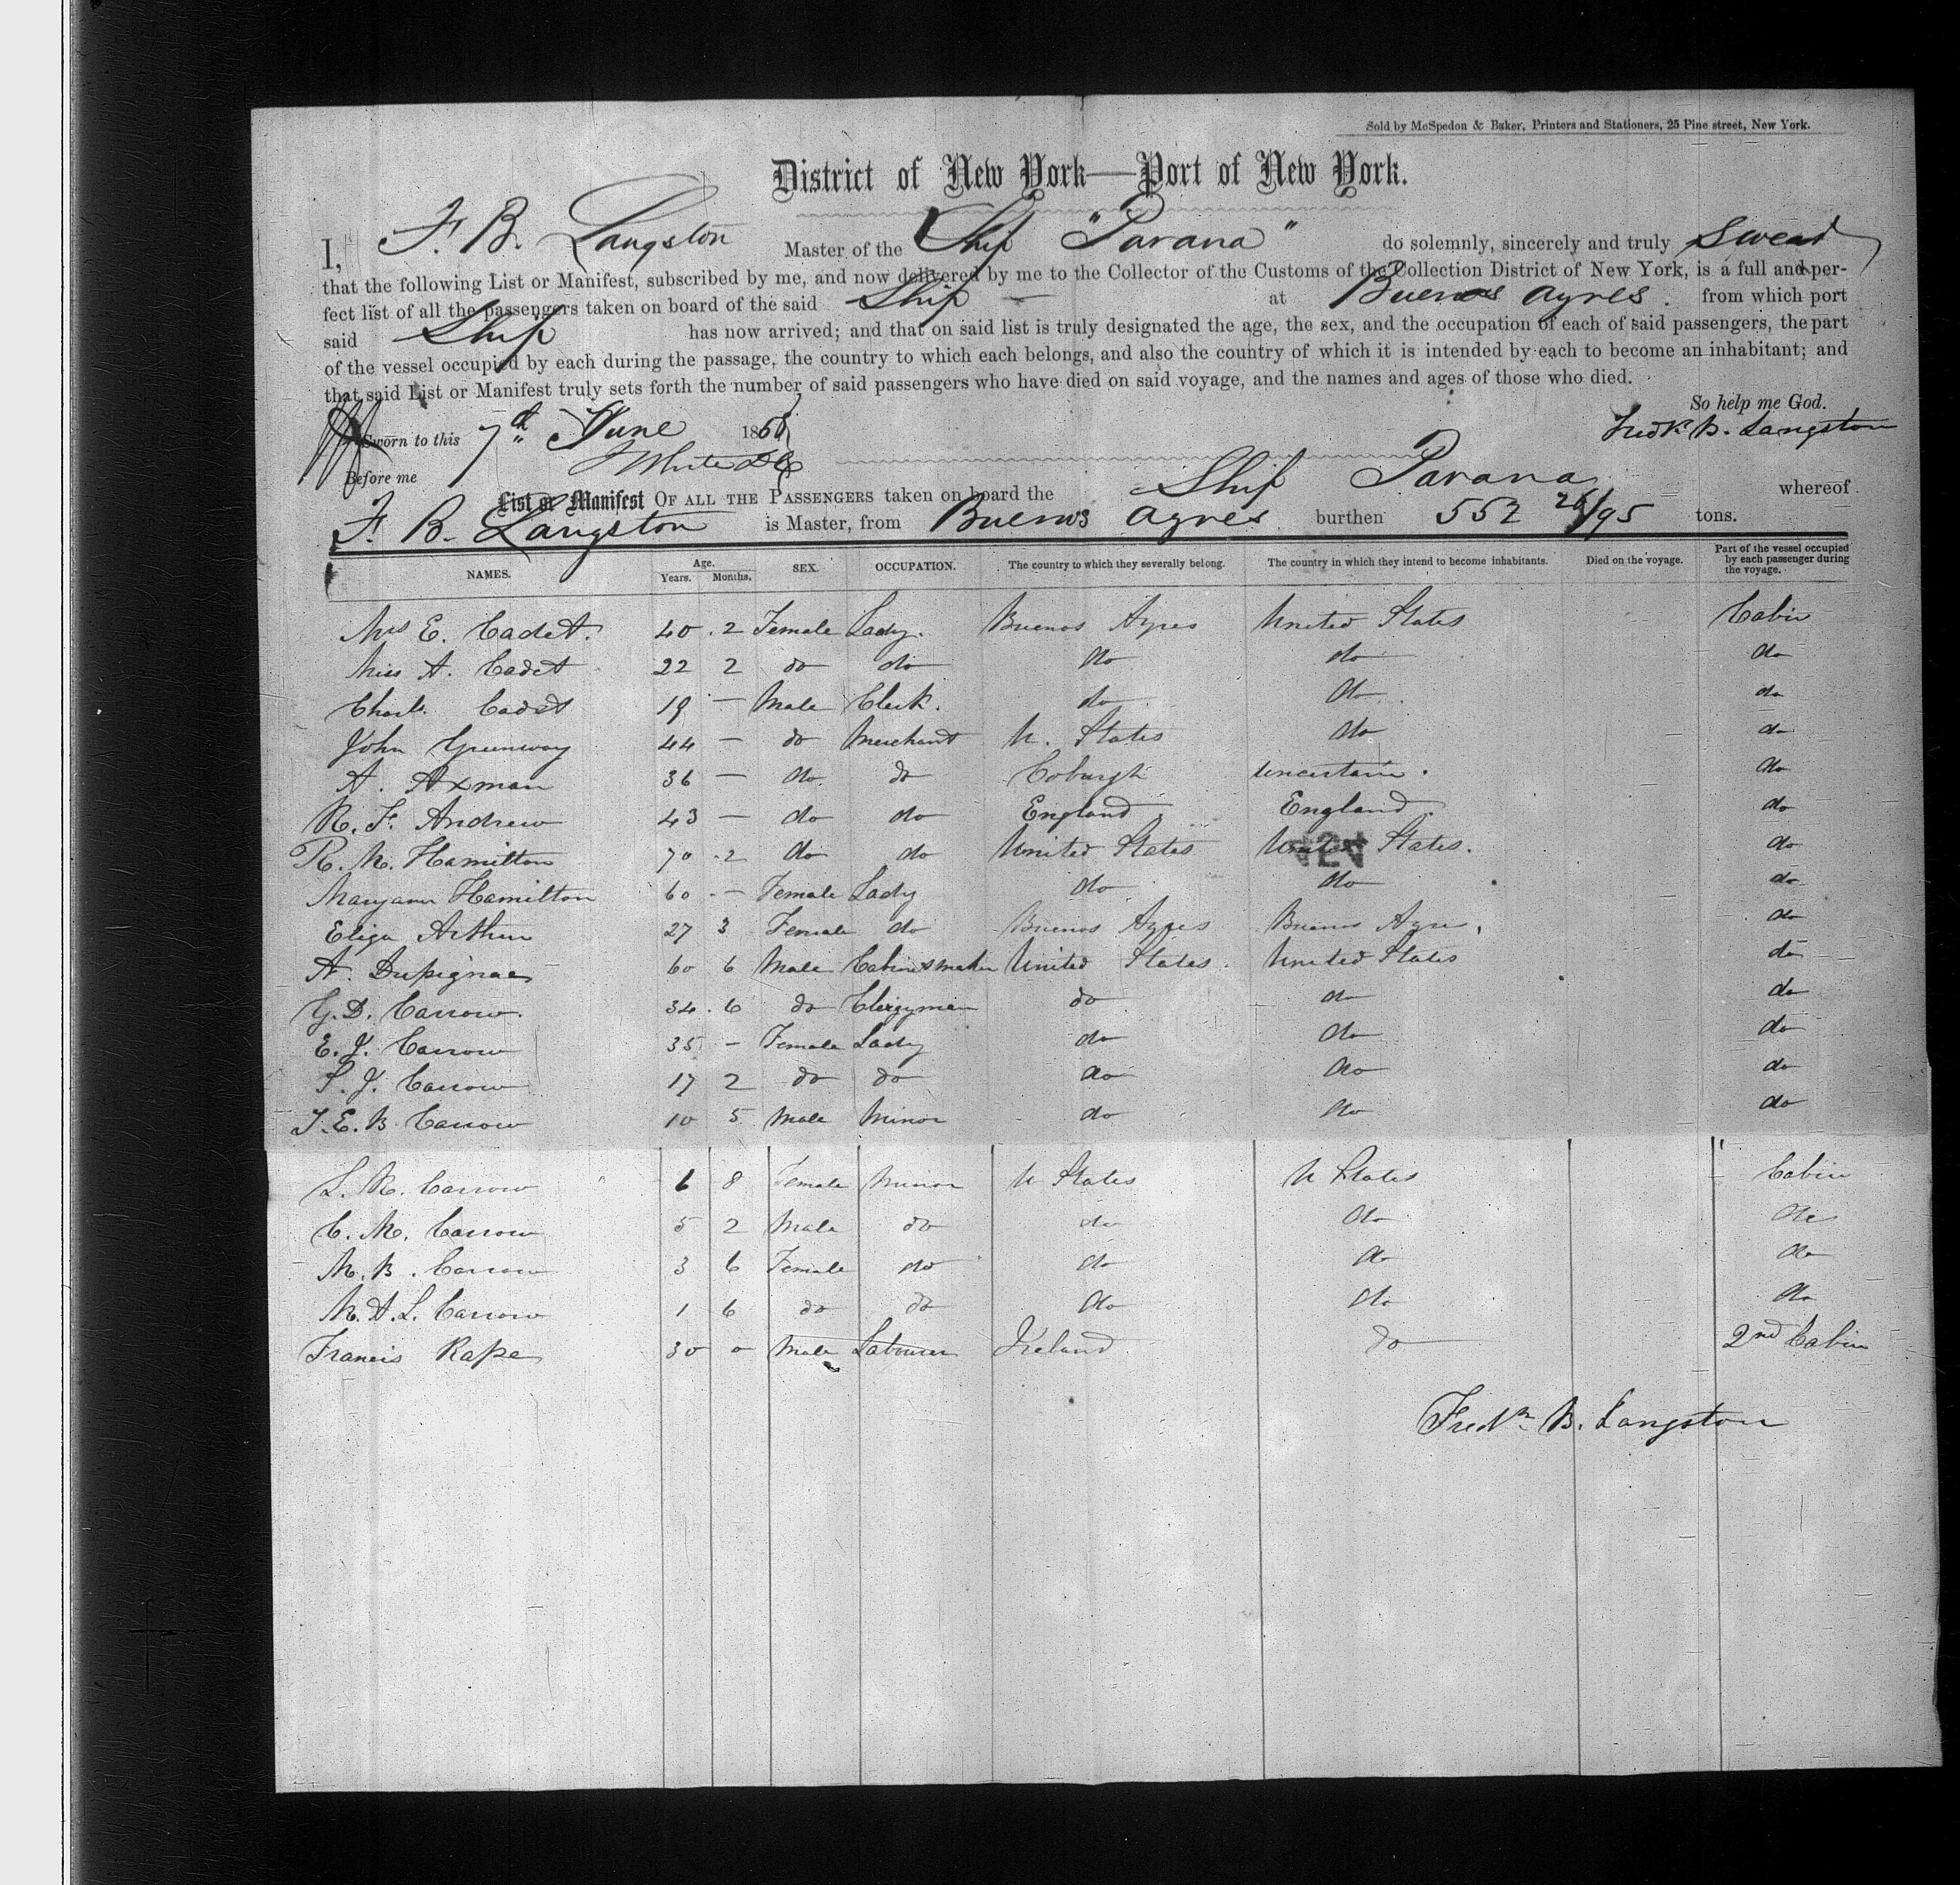 Sold by McSpedon & Baker, Printers and Stationers, 25 Pine street, New York.
District of New York—Port of New York.
I, F. B. Langston Master of the Ship "Parana" do solemnly, sincerely and truly Swear
that the following List or Manifest, subscribed by me, and now delivered by me to the Collector of the Customs of the Collection District of New York, is a full and per-
fect list of all the passengers taken on board of the said Ship — at Buenos Ayres. from which port
said Ship has now arrived; and that on said list is truly designated the age, the sex, and the occupation of each of said passengers, the part
of the vessel occupied by each during the passage, the country to which each belongs, and also the country of which it is intended by each to become an inhabitant; and
that said List or Manifest truly sets forth the number of said passengers who have died on said voyage, and the names and ages of those who died.
So help me God.
Sworn to this 7th June 186 Fredk. B. Langston
Before me White
List or Manifest OF ALL THE PASSENGERS taken on board the Ship Parana whereof
F. B. Langston is Master, from Buenos Ayres burthen 552 26/95 tons.
NAMES. Age. Years. Months. SEX. OCCUPATION. The country to which they severally belong. The country in which they intend to become inhabitants. Died on the voyage. Part of the vessel occupied by each passenger during the voyage.
Mrs E. Cadet. 40 . 2 Female Lady. Buenos Ayres United States Cabin
Miss A. Cadet 22 2 do do do do do
Charls. Cadet 19 — Male Clerk. do do do
John Greenway 44 — do Merchant U. States do do
A. Axman 36 — do do Coburgh uncertain. do
R. F. Andrew 43 — do do England England do
R. M. Hamilton 70 . 2 do do United States United States. do
Maryann Hamilton 60 . — Female Lady do do do
Eliza Arthur 27 3 Female do Buenos Ayres Buenos Ayres, do
A. Dupignac 60 6 Male Cabinetmaker United States. United States do
G. D. Carrow. 34 . 6 do Clergyman do do do
E. J. Carrow 35 - Female Lady do do do
S. J. Carrow 17 2 do do do do do
T. E. B. Carrow 10 5 Male Minor do do do
L. R. Carrow 6 8 Female Minor U States U States Cabin
C. M. Carrow 5 2 Male do do do do
M. B. Carrow 3 6 Female do do do do
M. A. L. Carrow 1 6 do do do do do
Francis Rape 30 0 Male Labourer Ireland do 2nd Cabin
Fredk. B. Langston